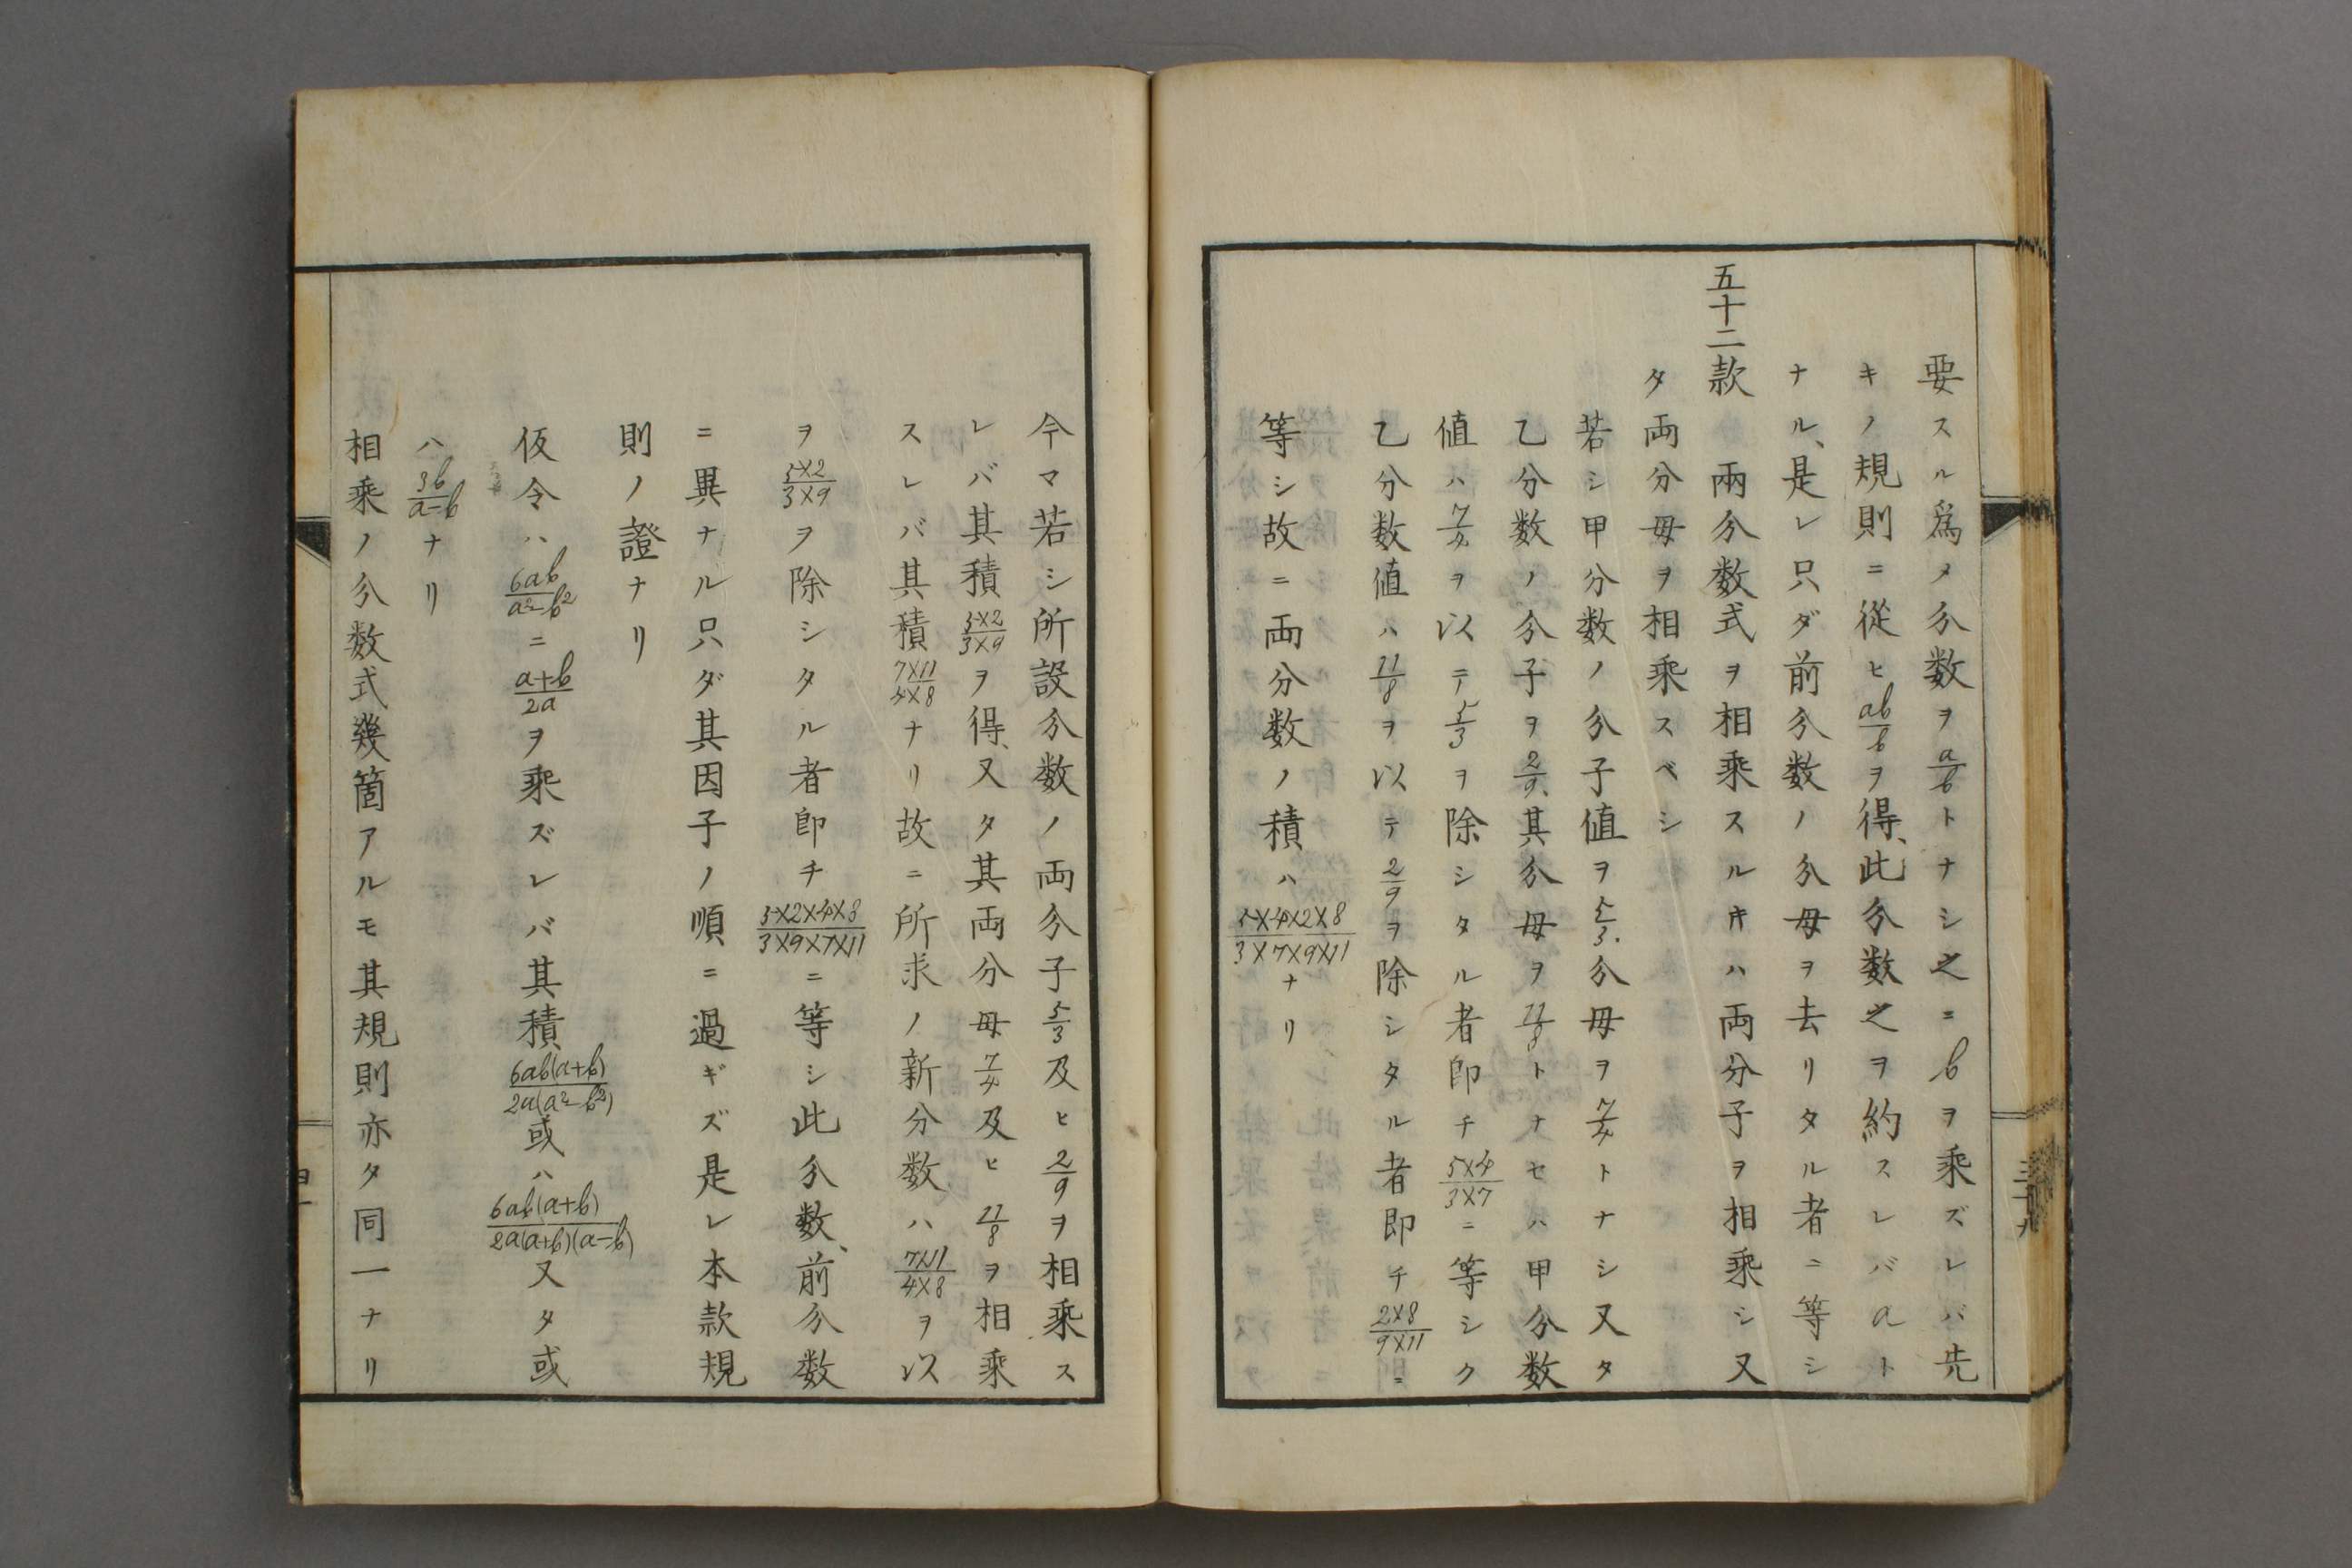 要スル為メ分数ヲa/bトナシ之ニbヲ乘ズレバ先
キノ規則ニ從ヒab/bヲ得、此分数之ヲ約スレバaト
ナル、是レ只ダ前分数ノ分母ヲ去リタル者ニ等シ
五十二款 兩分数式ヲ相乘スルキハ両分子ヲ相乘シ又
タ両分母ヲ相乘スベシ
若シ甲分数ノ分子値ヲ5/3.分母ヲ7/4トナシ又タ
乙分数ノ分子ヲ2/9、其分母ヲ11/8トナセハ甲分数
値ハ7/4ヲ以テ5/3ヲ除シタル者即チ5×4/3×7ニ等シク
乙分数値ハ11/8ヲ以テ2/9ヲ除シタル者即チ2×8/9×11ニ
等シ故ニ両分数ノ積ハ5×4×2×8/3×7×9×11ナリ
今マ若シ所設分数ノ両分子5/3及ヒ2/9ヲ相乘ス
レバ其積5×2/3×9ヲ得、又タ其両分母7/4及ヒ11/8ヲ相乘
スレバ其積7×11/4×8ナリ故ニ所求ノ新分数ハ7×11/4×8ヲ以
ヲ5×2/3×9ヲ除シタル者即チ5×2×4×8/3×9×7×11ニ等シ此分数、前分数
ニ異ナル只ダ其因子ノ順ニ過ギズ是レ本款規
則ノ證ナリ
仮令ハ6ab/a²-b²ニa+b/2aヲ乘ズレバ其積6ab(a+b)/2a(a²-b²)或ハ6ab(a+b)/2a(a+b)(a-b)又タ或
ハ3b/a-bナリ
相乘ノ分数式幾箇アルモ其規則亦タ同一ナリ